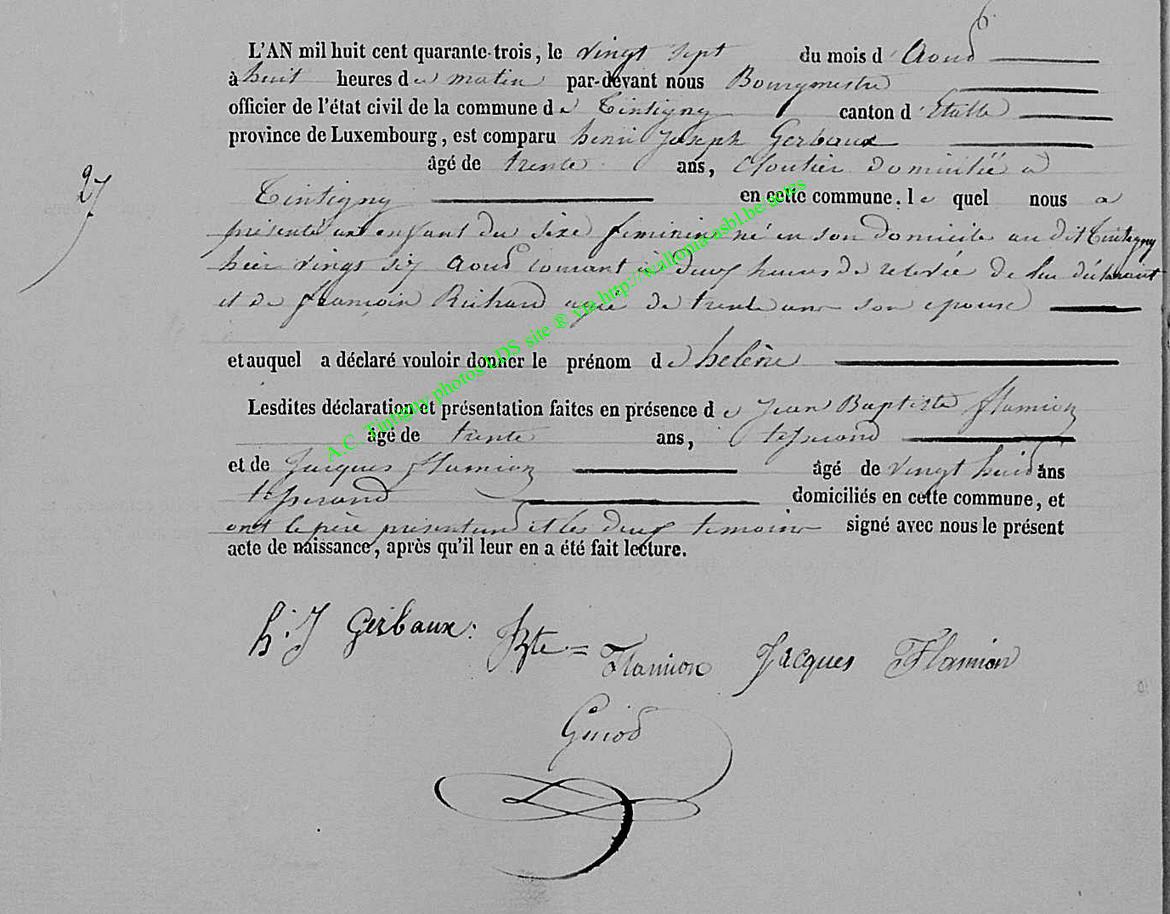 L'AN mil huit cent quarante-trois, le vingt sept du mois d'Aout
à huit heures de matin par-devant nous Bourgmestre
officier de l'état civil de la commune de Tintigny canton d'Etalle
province de Luxembourg, est comparu henri Joseph Gerbaux
âgé de trente ans, cloutier domicilié a
27
Tintigny en cette commune, le quel nous a
présenté un enfant du sexe feminin né en son domicile au dit Tintigny
hier vingt six Aout courant à deux heures de relevée de lui déclarant
et de Richard agée de trente ans son epouse
et auquel a déclaré vouloir donner le prénom de helène
Lesdites déclaration et présentation faites en présence de Jean Baptiste flamion
âgé de trente ans, tisserand
et de Jacques flamion âgé de vingt huit ans
tisserand domiciliés en cette commune, et
ont le père présentant et les deux temoins signé avec nous le présent
acte de naissance, après qu'il leur en a été fait lecture.
h. J Gerbaux: Bte = Flamion Jacques Flamion
A.C. Tintigny photos LDS site ® via http://wallonia-asbl.be